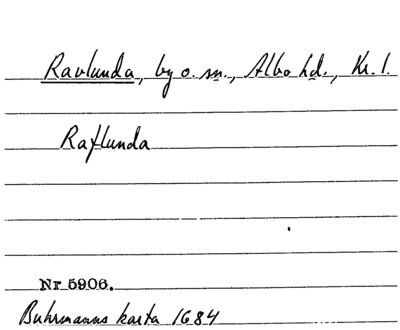 Ravlunda, by o. sn., Albo hd., Kr. l.
Raflunda
Nr 5906.
Buhrmanns karta 1684